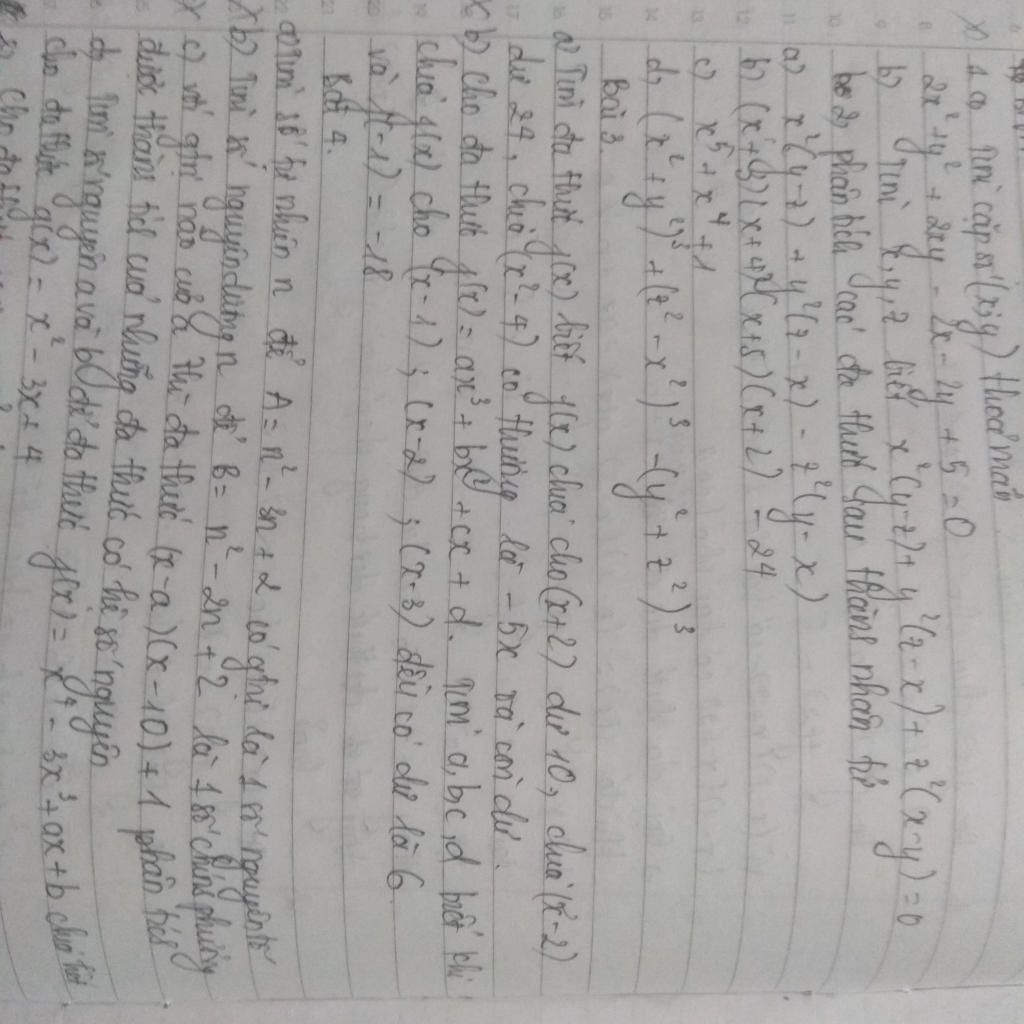 1 a, Tìm cặp số (x;y) thoả mãn
2x² + y² + 2xy - 2x - 2y + 5 = 0
b) Tìm x, y, z biết x²(y-z) + y²(z-x) + z²(x-y) = 0
2, phân tích các đa thức sau thành nhân tử
a) x²(y-z) + y²(z-x) - z²(y-x)
b) (x+3)(x+4)(x+5)(x+2) - 24
c) x⁵ + x⁴ + 1
d, (x² + y²)³ + (z² - x²)³ - (y² + z²)³
Bài 3.
a) Tìm đa thức f(x) biết f(x) chia cho (x+2) dư 10, chia (x-2)
dư 24, chia (x²-4) có thương là -5x và còn dư.
b) cho đa thức f(x) = ax³ + bx² + cx + d. Tìm a, b, c, d biết khi
chia f(x) cho (x-1) ; (x-2) ; (x-3) đều có dư là 6
và f(-1) = -18
Bài 4.
a) Tìm số tự nhiên n để A = n² - 3n + 2 có gtrị là 1 số nguyên tố
b) Tìm số nguyên dương n để B = n² - 2n + 2 là 1 số chính phương
c) với gtrị nào của a thì đa thức (x-a)(x-10) + 1 phân tích
được thành tích của những đa thức có hệ số nguyên
d) Tìm số nguyên a và b để đa thức f(x) = x⁴ - 3x³ + ax + b chia hết
cho đa thức g(x) = x² - 3x + 4
cho đa thức